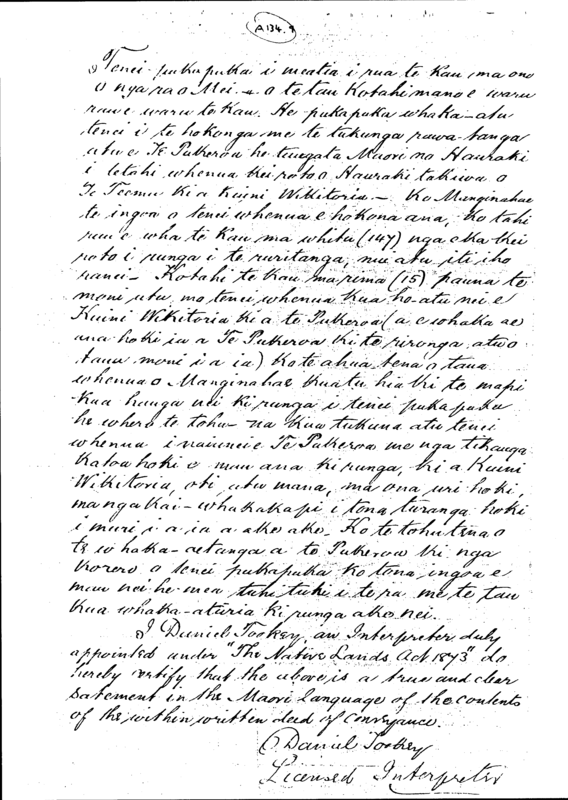 A 134.
Tenei pukapuka i meatia i rua te kau ma ono
o nga ra o Mei o te tau Kotahi mano e waru
rau e waru te kau. He pukapuka whaka-atu
tenei i te hokonga me te tukunga rawa-tanga
atu e Te Pukeroa he tangata Maori no Hauraki
i tetahi whenua kei roto o Hauraki takiwa o
Te Teemu ki a Kuini Wikitoria - Ko Manginahae
te ingoa o tenei whenua e hokona ana, Kotahi
rau e wha te Kau ma whitu (147) nga eka kei
roto i runga i te ruritanga, nui atu iti iho
ranei - Kotahi te Kau ma rima (15) pauna te
moni utu, mo tenei whenua kua ho-atu nei e
Kuini Wikitoria ki a te Pukeroa (a e whaka ae
ana hoki ia a Te Pukeroa ki te rironga atu o
taua moni i a ia) Ko te ahua tena o taua
whenua o Manginahae kua tu hia ki te mapi
kua hanga nei ki runga i tenei pukapuka
he whero te tohu - na kua tukuna atu tenei
whenua inaianei e Te Pukeroa me nga tikanga
katoa hoki e mau ana ki runga, ki a Kuini
Wikitoria, oti atu mana, ma ona uri hoki,
ma nga kai-whakakapi i tona turanga hoki
i muri i a ia a ake ake. Ko te tohu tena o
te whaka-aetanga a te Pukeroa ki nga
korero o tenei pukapuka ko tona ingoa e
mau nei he mea tuhi tuhi i te ra me te tau
kua whaka-aturia ki runga ake nei.
I Daniel Tookey, an Interpreter duly
appointed under "The Native Lands Act 1873" do
hereby certify that the above is a true and clear
statement in the Maori language of the contents
of the within written deed of conveyance.
Daniel Tookey
Licensed Interpreter